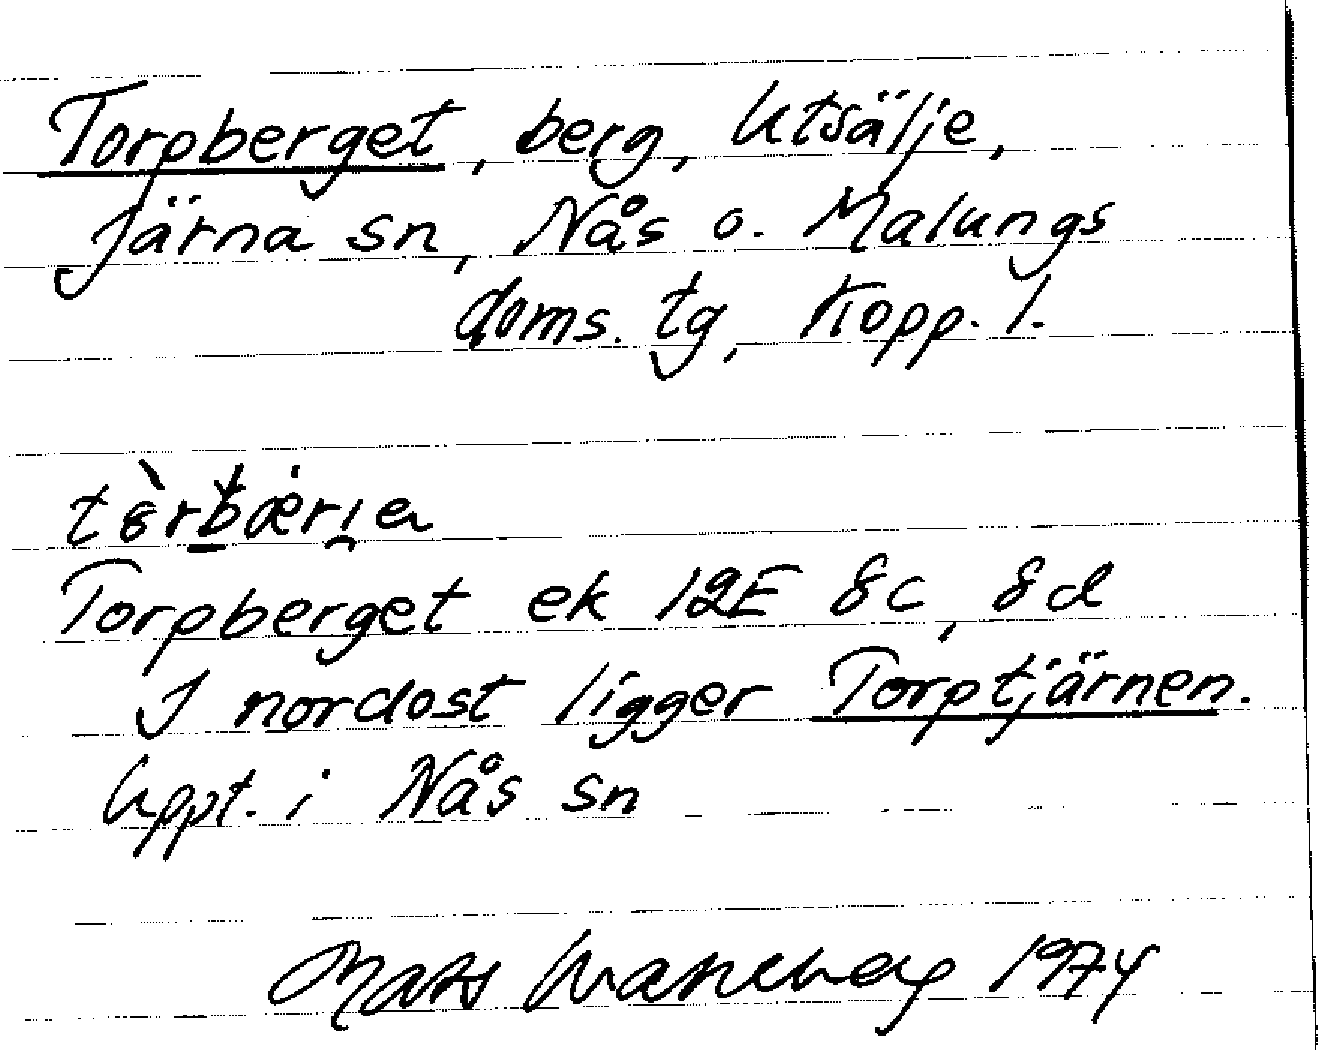 Torpberget, berg, Utsälje,
Järna sn, Nås o. Malungs
doms. tg, Kopp. l.
Torpberget ek 12E 8c, 8d
I nordost ligger Torptjärnen.
Uppt. i Nås sn
Mats Wahlberg 1974